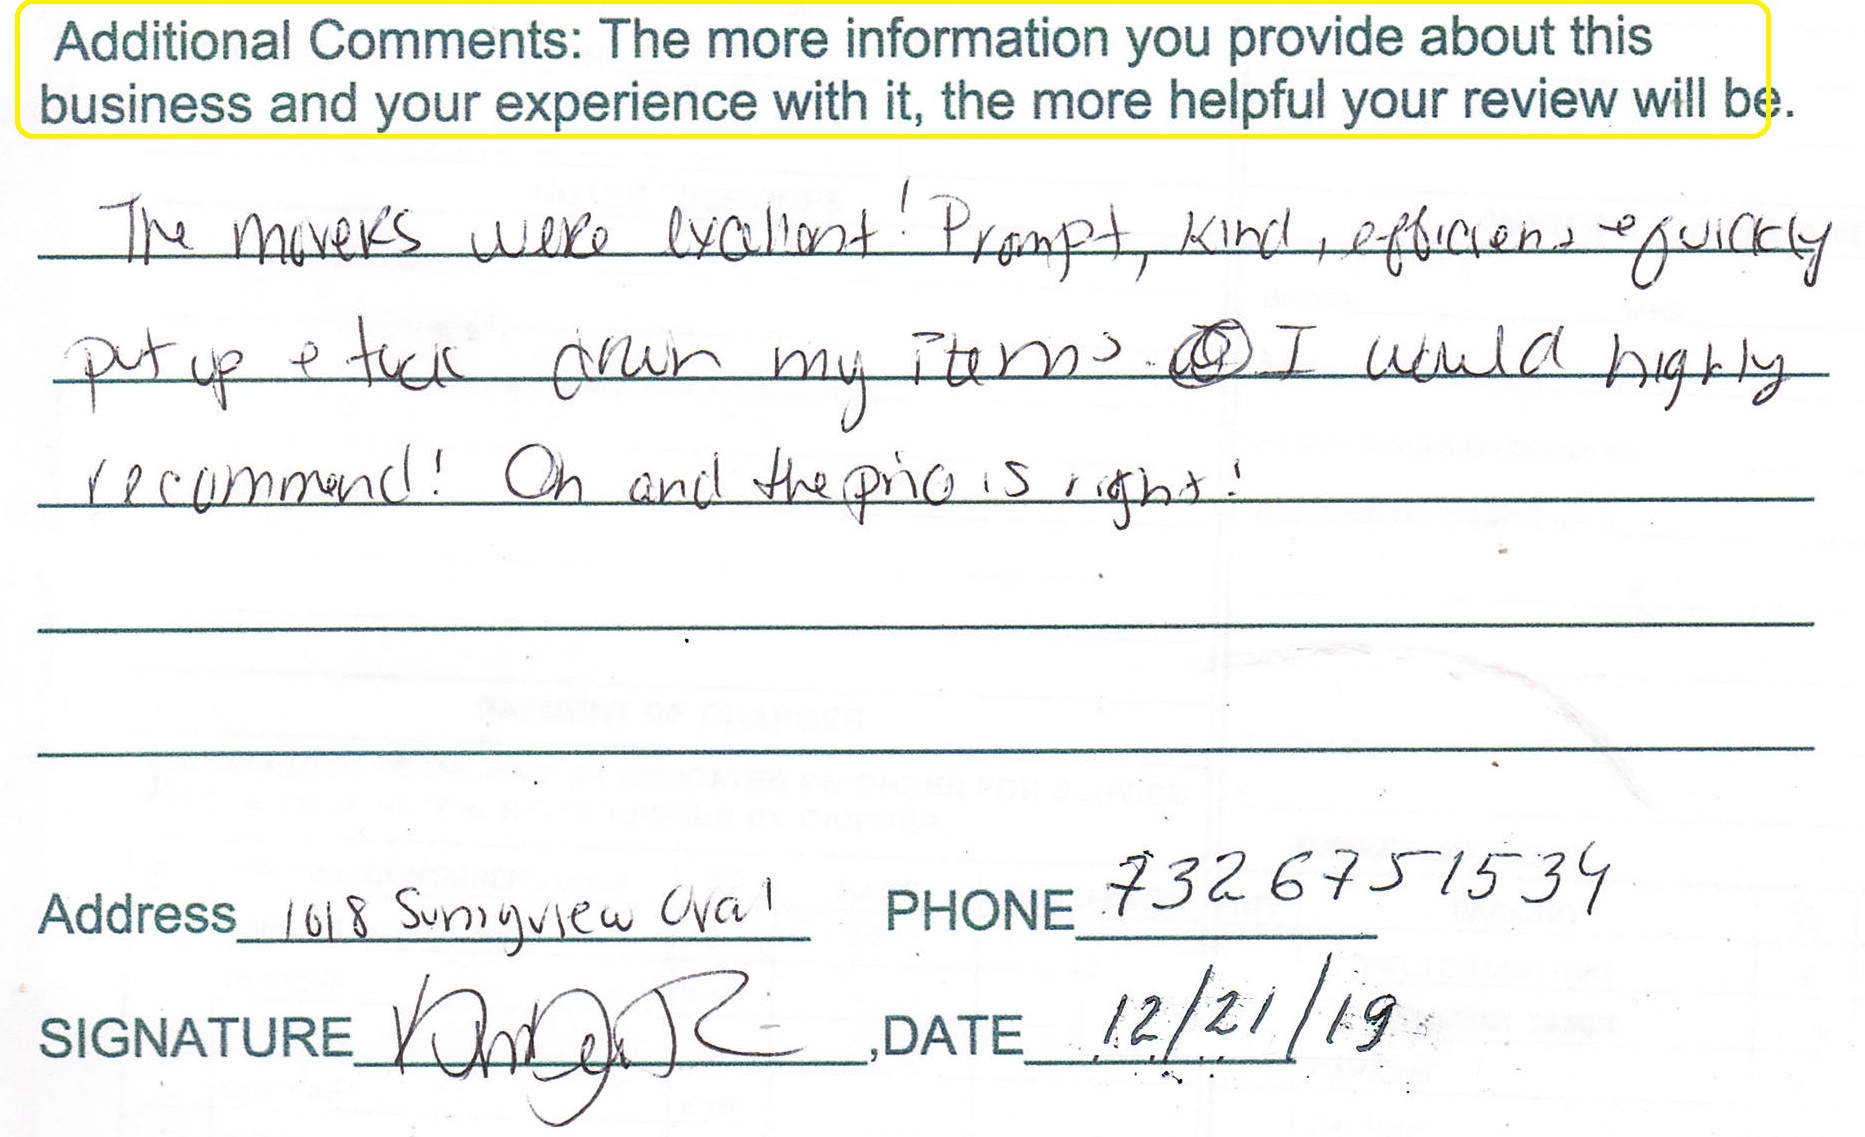 Additional Comments: The more information you provide about this
business and your experience with it, the more helpful your review will be.
The movers were excellent! Prompt, kind, efficient & quickly
put up & tuck down my items. I would highly
recommend! Oh and the price is right!
Address 1018 Sunnyview Oval PHONE 7326751534
SIGNATURE ,DATE 12/21/19